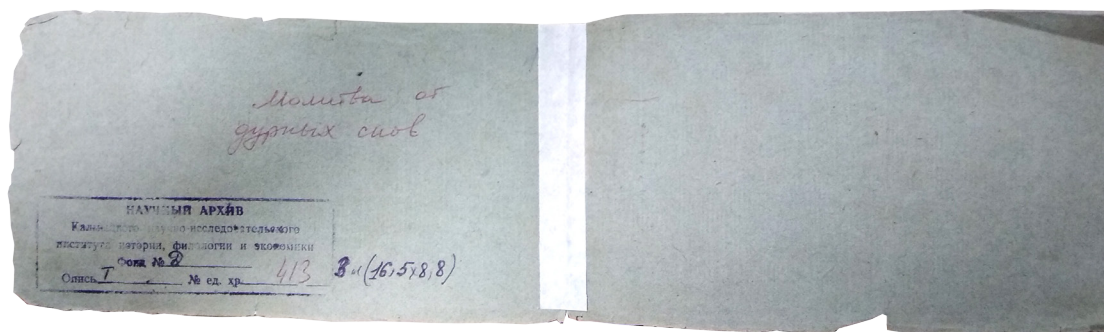 Молитва от
дурных снов
НАУЧНЫЙ АРХИВ
Калмыцкого научно-исследовательского
института истории, филологии и экономики
Фонд № Д
Опись I № ед. хр. 413 (16,5x8,8)